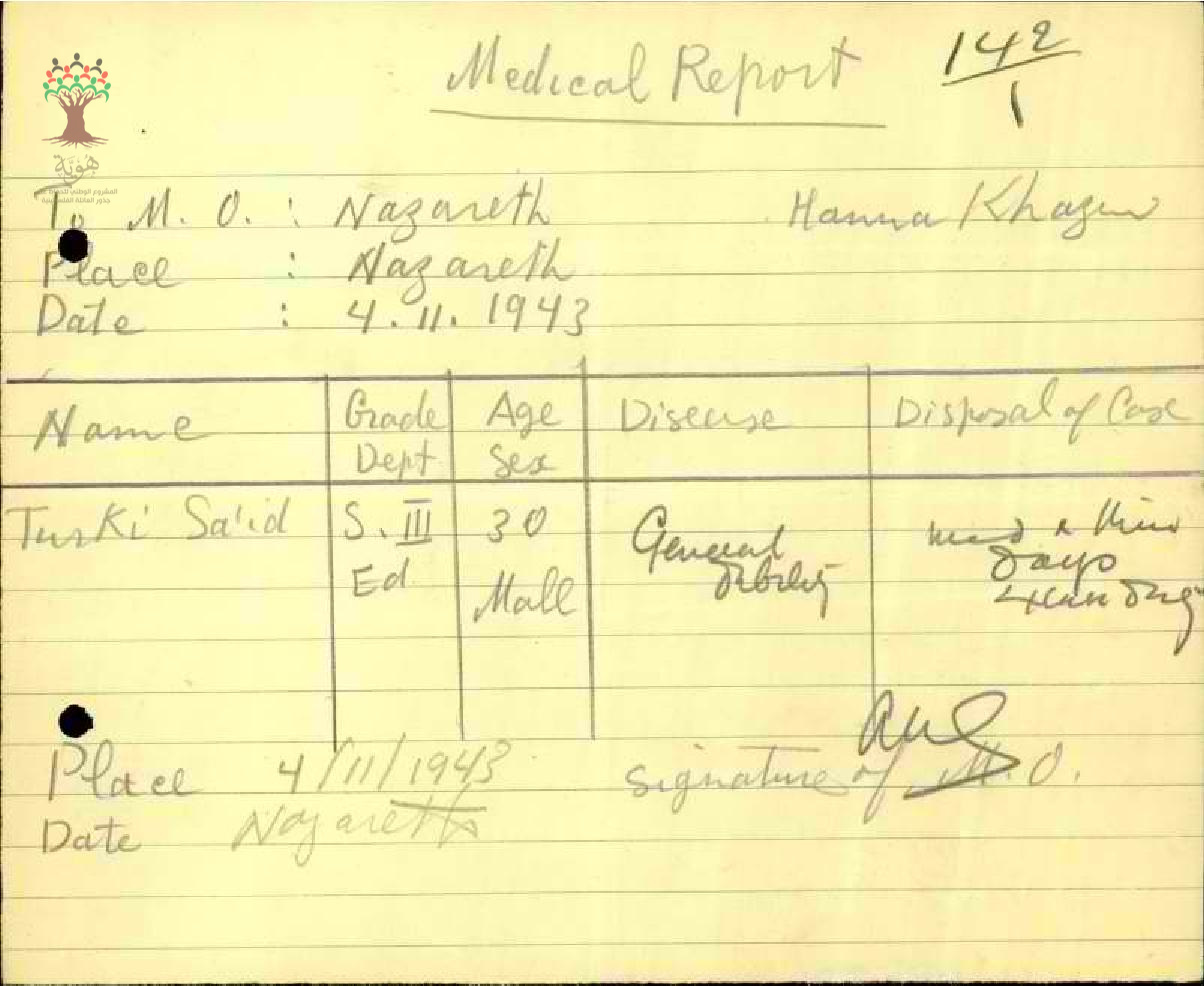 Medical Report
142
1
هَوِيَّة
المشروع الوطني
جذور العائلة الفلسطينية
To M. O. : Nazareth Hanna Khazen
Place : Nazareth
Date : 4. 11. 1943
Name Grade Dept Age Sex Disease Disposal of Case
Turki Sa'id S. III Ed 30 Male General debility days
Place 4/11/1943 Signature of M. O.
Date Nazareth